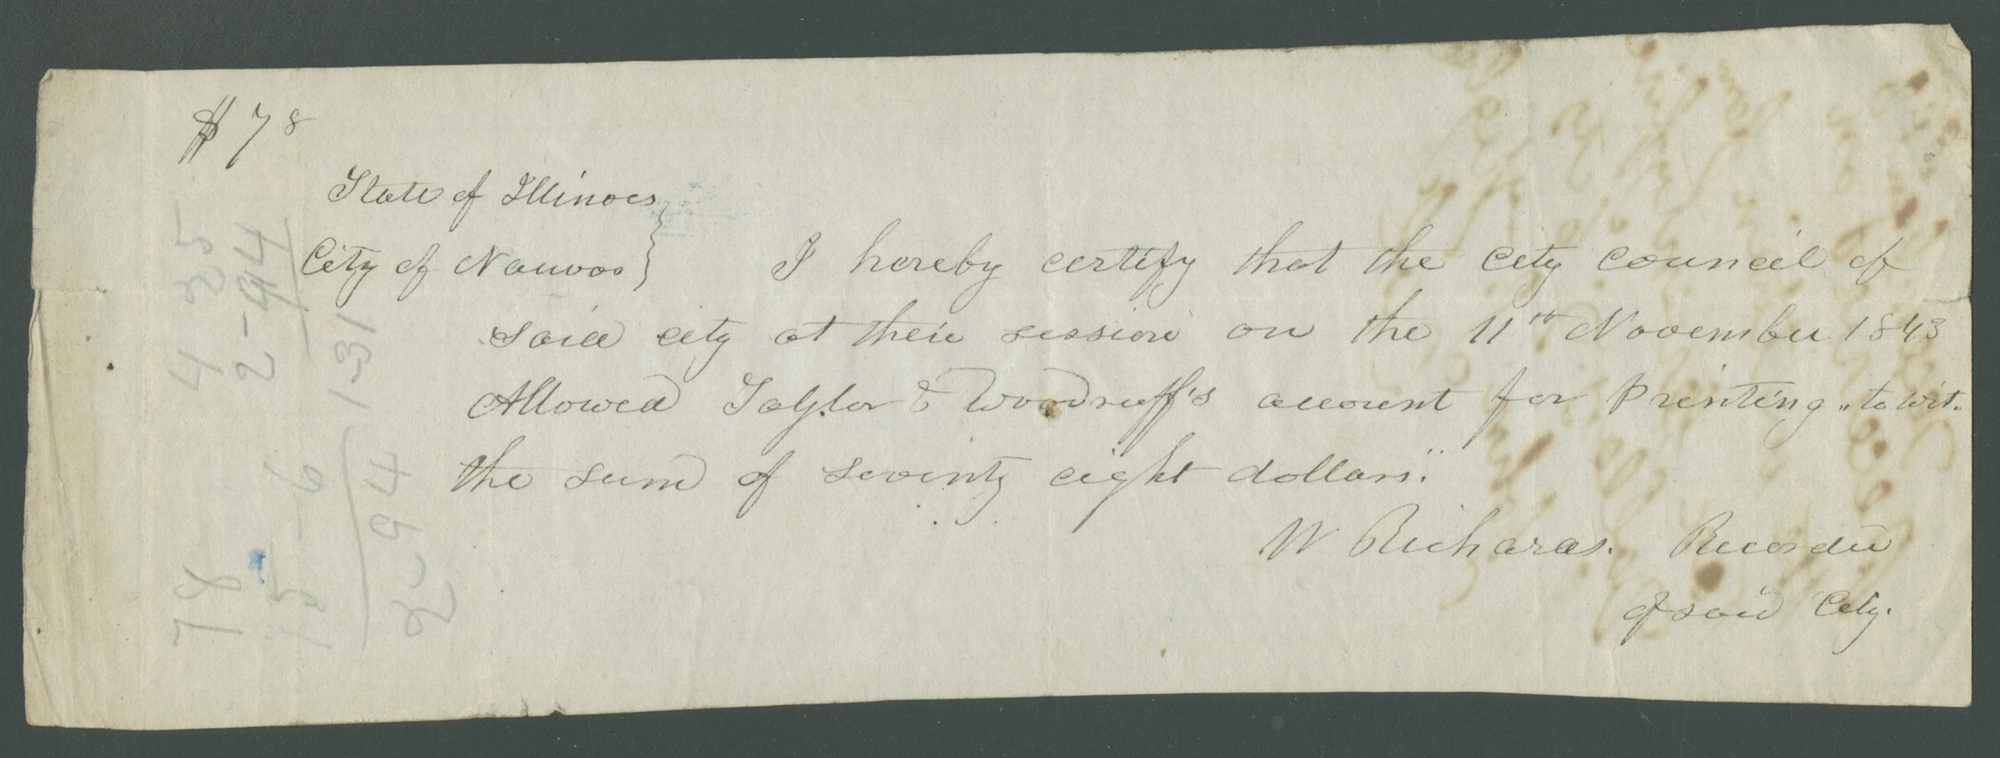 $78
State of Illinois }
City of Nauvoo } I hereby certify that the city council of
said city at their session on the 11th November 1843
Allowed Taylor & Woodruff's account for Printing „to wit.
the sum of seventy eight dollars."
W Richards. Recorder
of said City.
4 35
2-94
1-31
78
15-6
2-94